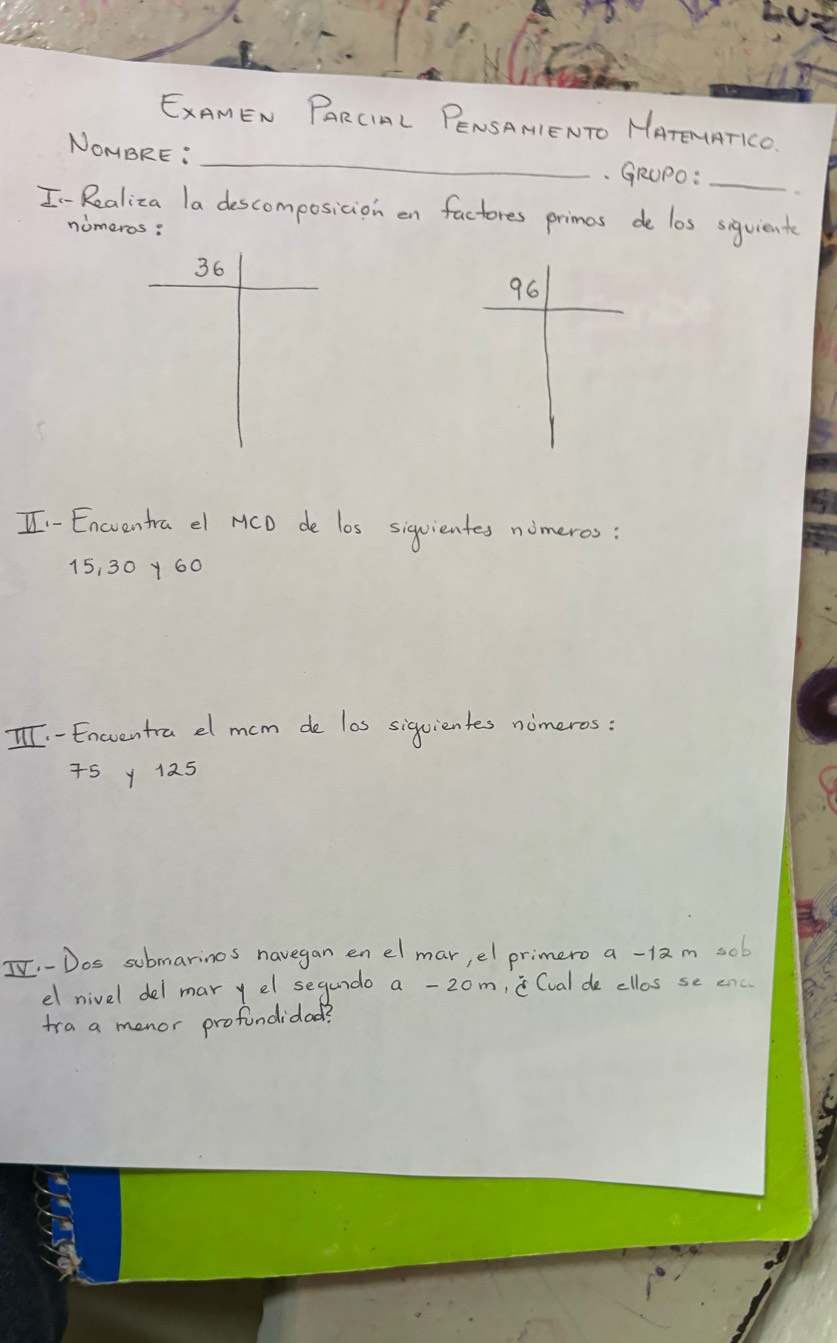 LUZ
EXAMEN PARCIAL PENSAMIENTO MATEMATICO.
NOMBRE: ________________. GRUPO: _____.
I.- Realiza la descomposición en factores primos de los siguiente
números:
36
96
II.- Encuentra el MCD de los siguientes números:
15,30 y 60
III.- Encuentra el mcm de los siguientes números:
75 y 125
IV.- Dos submarinos navegan en el mar, el primero a -12 m sob
el nivel del mar y el segundo a -20m, ¿Cual de ellos se enc
tra a menor profundidad?